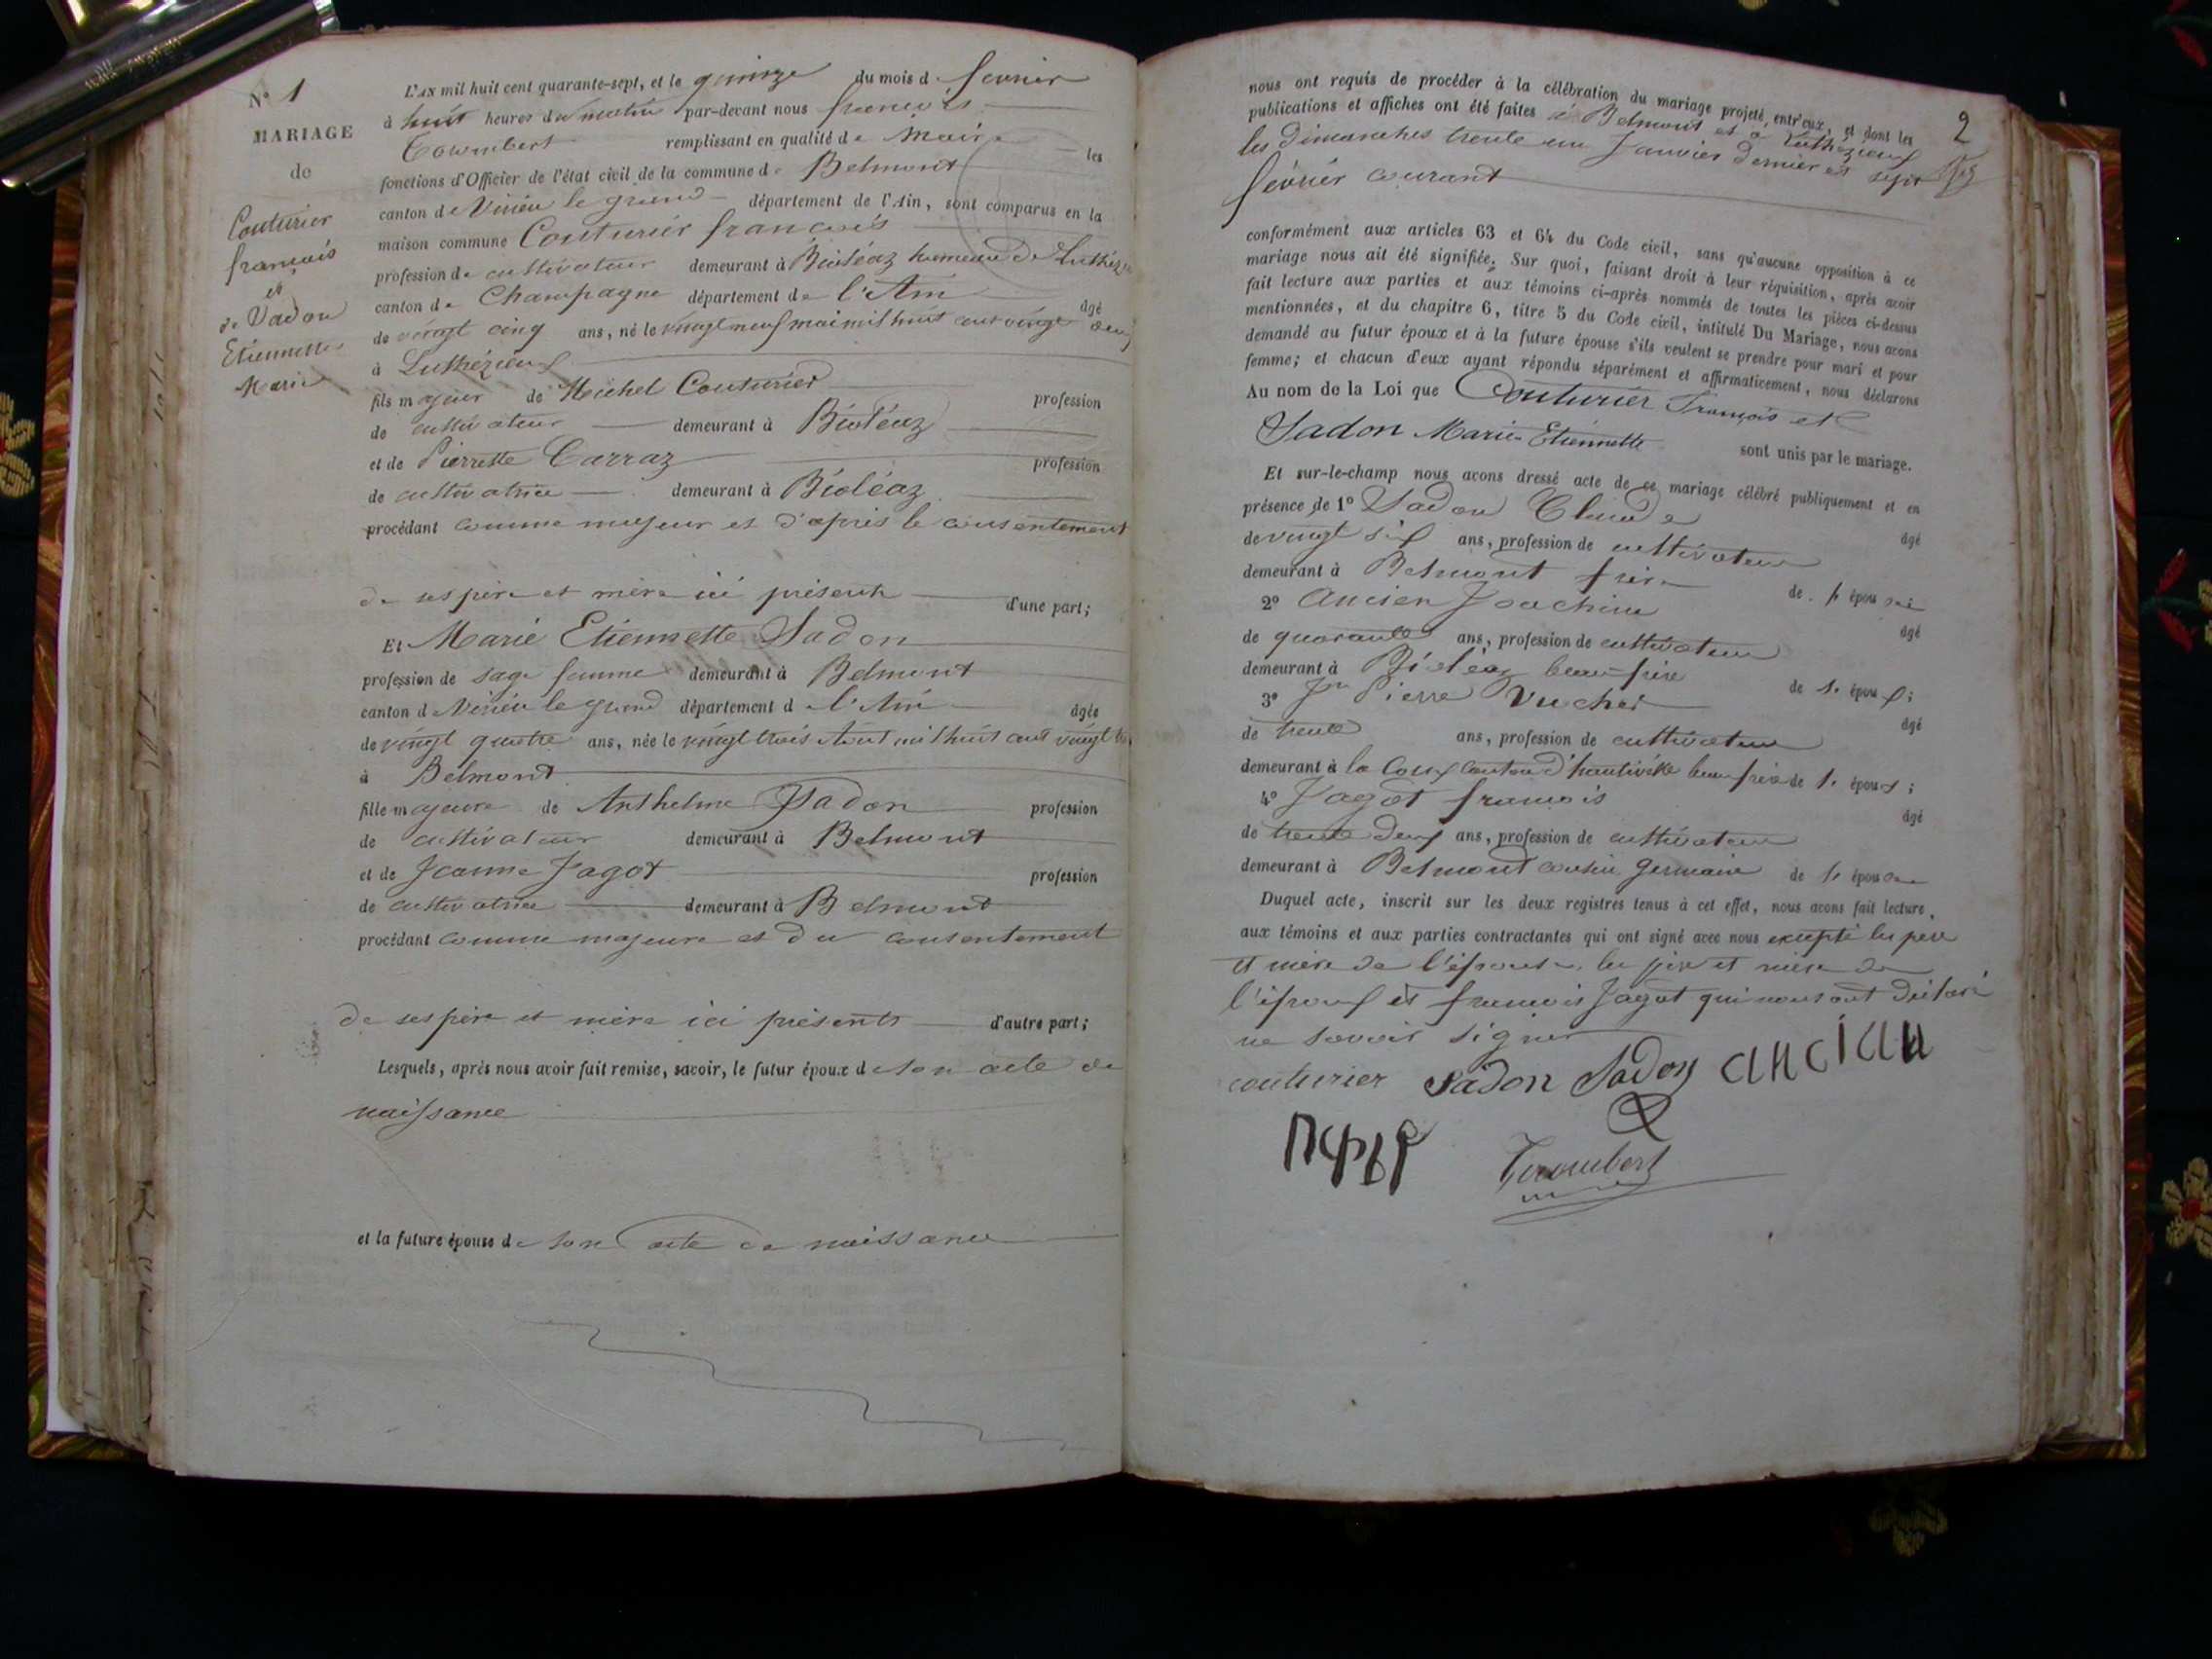 N° 1
MARIAGE
de
Couturier
françois
et
de Sadon
Etiennette
Marie
L'AN mil huit cent quarante-sept, et le quinze du mois de fevrier
à huit heures du matin par-devant nous françois
remplissant en qualité de Maire les
fonctions d'Officier de l'état civil de la commune de Belmont
canton de Virieu le grand département de l'Ain, sont comparus en la
maison commune Couturier françois
profession de cultivateur demeurant à Bioléaz hameau de
canton de Champagne département de l'Ain âgé
de vingt cinq ans, né le vingt neuf mai mil huit cent vingt
à Luthézieux
fils majeur de Michel Couturier profession
de cultivateur demeurant à Bioléaz
et de Pierrette Carraz profession
de cultivatrice demeurant à Bioléaz
procédant comme majeur et d'après le consentement
de ses père et mère ici présents d'une part;
Et Marie Etiennette Sadon
profession de sage femme demeurant à Belmont
canton de Virieu le grand département d l'Ain âgée
de vingt quatre ans, née le vingt trois Aout mil huit cent vingt
à Belmont
fille majeure de Anthelme Sadon profession
de cultivateur demeurant à Belmont
et de Jeanne Jagot profession
de cultivatrice demeurant à Belmont
procédant comme majeure et du consentement
de ses père et mère ici présents d'autre part;
Lesquels, après nous avoir fait remise, savoir, le futur époux de son acte de
naissance
et la future épouse de son acte de naissance
2
nous ont requis de procéder à la célébration du mariage projeté entr'eux, et dont les
publications et affiches ont été faites à Belmont et à Luthézieux
les dimanches trente un Janvier dernier et sept
février courant
conformément aux articles 63 et 64 du Code civil, sans qu'aucune opposition à ce
mariage nous ait été signifiée. Sur quoi, faisant droit à leur réquisition, après avoir
fait lecture aux parties et aux témoins ci-après nommés de toutes les pièces ci-dessus
mentionnées, et du chapitre 6, titre 5 du Code civil, intitulé Du Mariage, nous avons
demandé au futur époux et à la future épouse s'ils veulent se prendre pour mari et pour
femme; et chacun d'eux ayant répondu séparément et affirmativement, nous déclarons
Au nom de la Loi que Couturier François et
Sadon Marie Etiennette sont unis par le mariage.
Et sur-le-champ nous avons dressé acte de ce mariage célébré publiquement et en
présence de 1° Sadon Claude âgé
de vingt six ans, profession de cultivateur
demeurant à Belmont frère de l'épouse
2° Ancien Joachim âgé
de quarante ans, profession de cultivateur
demeurant à Bioléaz beau-frère de l'époux;
3° Jn Pierre Vuchei âgé
de trente ans, profession de cultivateur
demeurant à la Coux canton d'hauteville beau frère de l'époux;
4° Jagot françois âgé
de trente deux ans, profession de cultivateur
demeurant à Belmont cousin germain de l'épouse
Duquel acte, inscrit sur les deux registres tenus à cet effet, nous avons fait lecture
aux témoins et aux parties contractantes qui ont signé avec nous excepté les père
et mère de l'épouse, les père et mère de
l'époux et françois Jagot qui nous ont déclaré
ne savoir signer
couturier Sadon Sadon ancien